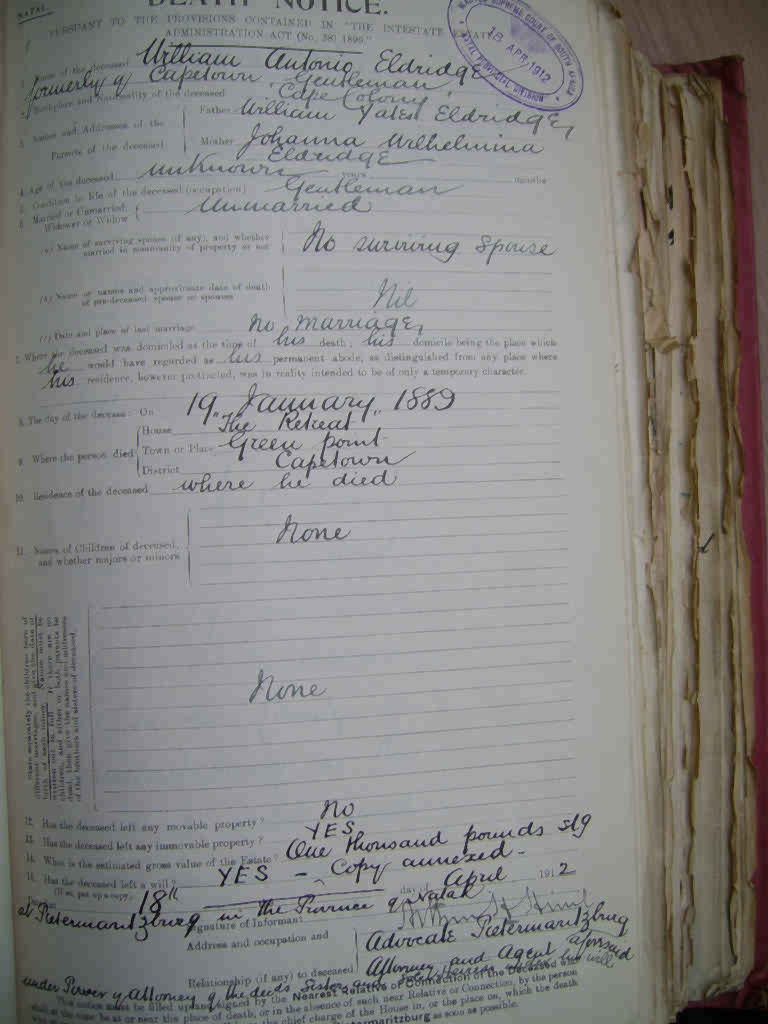 NATAL.
DEATH NOTICE.
PURSUANT TO THE PROVISIONS CONTAINED IN "THE INTESTATE ESTATES
ADMINISTRATION ACT (No. 38) 1896."
MASTER SUPREME COURT OF SOUTH AFRICA
18 APR 1912
NATAL PROVINCIAL DIVISION
1. Name of the deceased William Antonio Eldridge
formerly of Capetown Gentleman
2. Birthplace and Nationality of the deceased Cape Colony
3. Names and Addresses of the Parents of the deceased
Father William Yates Eldridge
Mother Johanna Wilhelmina
Eldridge
4. Age of the deceased unknown years months
5. Condition in life of the deceased (occupation) Gentleman
6. Married or Unmarried, Widower or Widow Unmarried
(a) Name of surviving spouse (if any), and whether
married in community of property or not No surviving Spouse
(b) Name or names and approximate date of death
of pre-deceased spouse or spouses Nil
(c) Date and place of last marriage No marriage
7. Where the deceased was domiciled at the time of his death; his domicile being the place which
he would have regarded as his permanent abode, as distinguished from any place where
his residence, however protracted, was in reality intended to be of only a temporary character.
8. The day of the decease: On 19 January 1889
9. Where the person died
House "The Retreat"
Town or Place Green point
District Capetown
10. Residence of the deceased where he died
11. Names of Children of deceased,
and whether majors or minors None
State separately the children born of
different marriages, and give the date of
birth of each minor. Names must be
written out in full. If there are no
children, and either or both parents be
dead, then give the names and addresses
of the brothers and sisters of deceased.
None
12. Has the deceased left any movable property? No
13. Has the deceased left any immovable property? YES
14. What is the estimated gross value of the Estate? One thousand pounds stg
15. Has the deceased left a will? YES - Copy annexed -
(If so, put up a copy.)
18th day of April 1912
at Pietermaritzburg in the Province of Natal
Signature of Informant
Address and occupation and Advocate Pietermaritzburg
Relationship (if any) to deceased Attorney and Agent aforesaid
under Power of Attorney of the deceds Sister and sole Heiress under his will
This notice must be filled up and signed by the Nearest Relative or Connection of the Deceased who
shall at the time be at or near the place of death, or in the absence of such near Relative or Connection, by the person
the chief charge of the House in, or the place on, which the death
Pietermaritzburg as soon as possible.